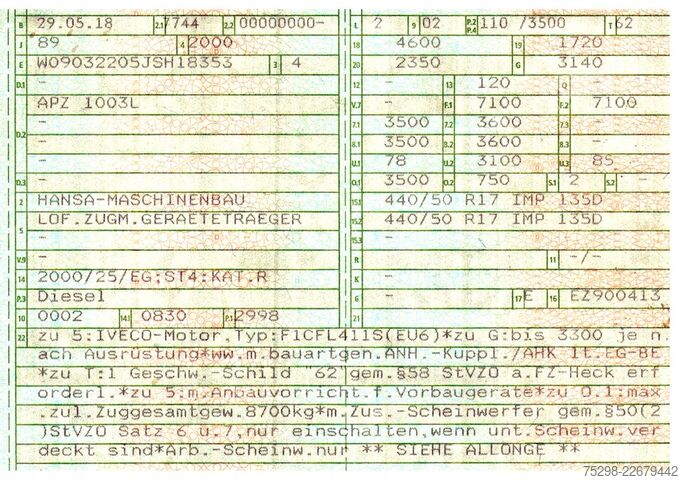 B 29.05.18 2.1 7744 2.2 00000000-
J 89 4 2000
E W09032205JSH18353 3 4
D.1 -
APZ 1003L
D.2 -
-
-
D.3 -
2 HANSA-MASCHINENBAU
5 LOF.ZUGM.GERAETETRAEGER
-
V.9 -
14 2000/25/EG;ST4;KAT.R
P.3 Diesel
10 0002 14.1 0830 P.1 2998
L 2 9 02 P.2 P.4 110 /3500 T 62
18 4600 19 1720
20 2350 G 3140
12 - 13 120 Q -
V.7 - F.1 7100 F.2 7100
7.1 3500 7.2 3600 7.3 -
8.1 3500 8.2 3600 8.3 -
U.1 78 U.2 3100 U.3 85
O.1 3500 O.2 750 S.1 2 S.2 -
15.1 440/50 R17 IMP 135D
15.2 440/50 R17 IMP 135D
15.3 -
R - 11 -/-
K -
6 - 17 E 16 EZ900413
21 -
22 zu 5:IVECO-Motor,Typ:F1CFL411S(EU6)*zu G:bis 3300 je n.
ach Ausrüstung*ww.m.bauartgen.ANH.-Kuppl./AHK lt.EG-BE
*zu T:1 Geschw.-Schild "62"gem.§58 StVZO a.FZ-Heck erf
orderl.*zu 5:m.Anbauvorricht.f.Vorbaugeräte*zu O.1:max
.zul.Zuggesamtgew.8700kg*m.Zus.-Scheinwerfer gem.§50(2
)StVZO Satz 6 u.7,nur einschalten,wenn unt.Scheinw.ver
deckt sind*Arb.-Scheinw.nur ** SIEHE ALLONGE **
75298-22679442